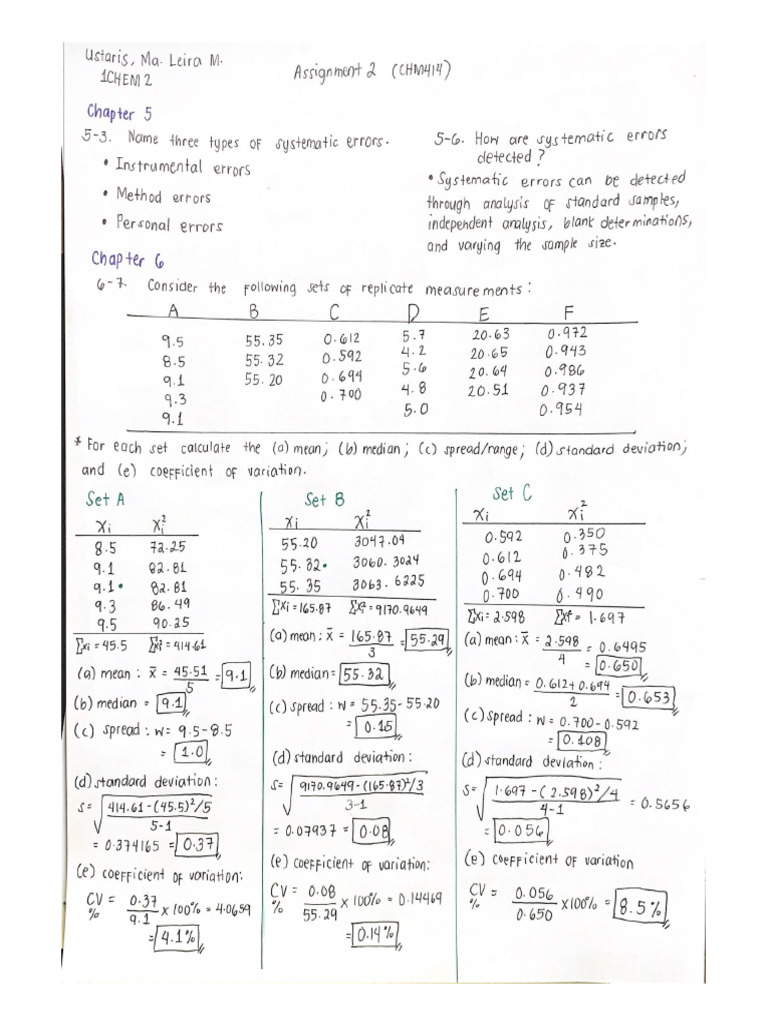 Ustaris, Ma. Leira M.
1CHEM 2
Assignment 2 (CHM414)
Chapter 5
5-3. Name three types of systematic errors.
• Instrumental errors
• Method errors
• Personal errors
5-6. How are systematic errors
detected?
• Systematic errors can be detected
through analysis of standard samples,
independent analysis, blank determinations,
and varying the sample size.
Chapter 6
6-7. Consider the following sets of replicate measurements:
A B C D E F
9.5 55.35 0.612 5.7 20.63 0.972
8.5 55.32 0.592 4.2 20.65 0.943
9.1 55.20 0.694 5.6 20.64 0.986
9.3 0.700 4.8 20.51 0.937
9.1 5.0 0.954
* For each set calculate the (a) mean; (b) median; (c) spread/range; (d) standard deviation;
and (e) coefficient of variation.
Set A
Xi Xi²
8.5 72.25
9.1 82.81
9.1• 82.81
9.3 86.49
9.5 90.25
∑Xi = 45.5 ∑Xi² = 414.61
(a) mean : x̄ = 45.51/5 = 9.1
(b) median = 9.1
(c) spread : w = 9.5 - 8.5
= 1.0
(d) standard deviation:
s = √(414.61 - (45.5)²/5 / 5-1)
= 0.374165 = 0.37
(e) coefficient of variation:
CV % = 0.37/9.1 x 100% = 4.0659
= 4.1%
Set B
Xi Xi²
55.20 3047.04
55.32• 3060.3024
55.35 3063.6225
∑Xi = 165.87 ∑Xi² = 9170.9649
(a) mean : x̄ = 165.87/3 = 55.29
(b) median = 55.32
(c) spread : w = 55.35 - 55.20
= 0.15
(d) standard deviation :
s = √(9170.9649 - (165.87)²/3 / 3-1)
= 0.07937 = 0.08
(e) coefficient of variation:
CV % = 0.08/55.29 x 100% = 0.14469
= 0.14%
Set C
Xi Xi²
0.592 0.350
0.612 0.375
0.694 0.482
0.700 0.490
∑Xi = 2.598 ∑Xi² = 1.697
(a) mean : x̄ = 2.598/4 = 0.6495
= 0.650
(b) median = 0.612 + 0.694/2 = 0.653
(c) spread : w = 0.700 - 0.592
= 0.108
(d) standard deviation :
s = √(1.697 - (2.598)²/4 / 4-1) = 0.5656
= 0.056
(e) coefficient of variation
CV % = 0.056/0.650 x100% = 8.5%